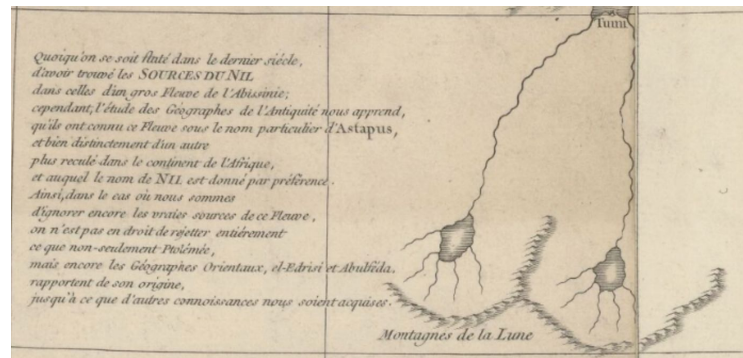 Tumi
Quoiqu'on se soit flaté dans le dernier siécle,
d'avoir trouvé les SOURCES DU NIL
dans celles d'un gros Fleuve de l'Abissinie;
cependant, l'étude des Géographes de l'Antiquité nous apprend,
qu'ils ont connu ce Fleuve sous le nom particulier d'Astapus,
et bien distinctement d'un autre
plus reculé dans le continent de l'Afrique,
et auquel le nom de NIL est donné par préférence.
Ainsi, dans le cas où nous sommes
d'ignorer encore les vraies sources de ce Fleuve,
on n'est pas en droit de rejetter entiérement
ce que non-seulement Ptolémée,
mais encore les Géographes Orientaux, el-Edrisi et Abulféda,
rapportent de son origine,
jusqu'à ce que d'autres connoissances nous soient acquises.
Montagnes de la Lune